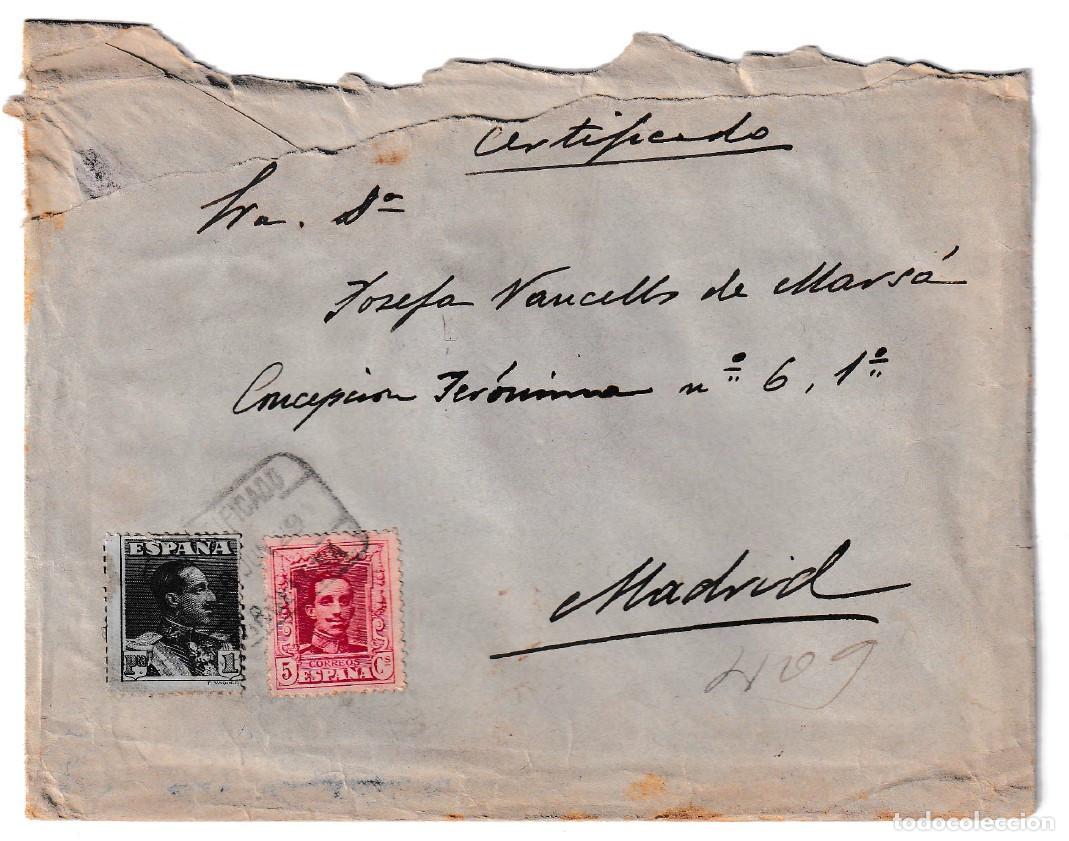 Certificado
Sra. Dª
Josefa Vancells de Marsá
Concepcion Jerónima nº 6, 1º
CERTIFICADO
ESPAÑA
Pta 1
5 CORREOS Cs
ESPAÑA
Madrid
409
todocoleccion